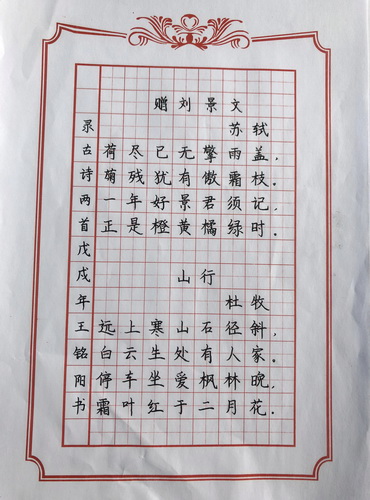 赠刘景文
苏轼
荷尽已无擎雨盖，
菊残犹有傲霜枝。
一年好景君须记，
正是橙黄橘绿时。
山行
杜牧
远上寒山石径斜，
白云生处有人家。
停车坐爱枫林晚，
霜叶红于二月花。
录古诗两首戊戌年王铭阳书